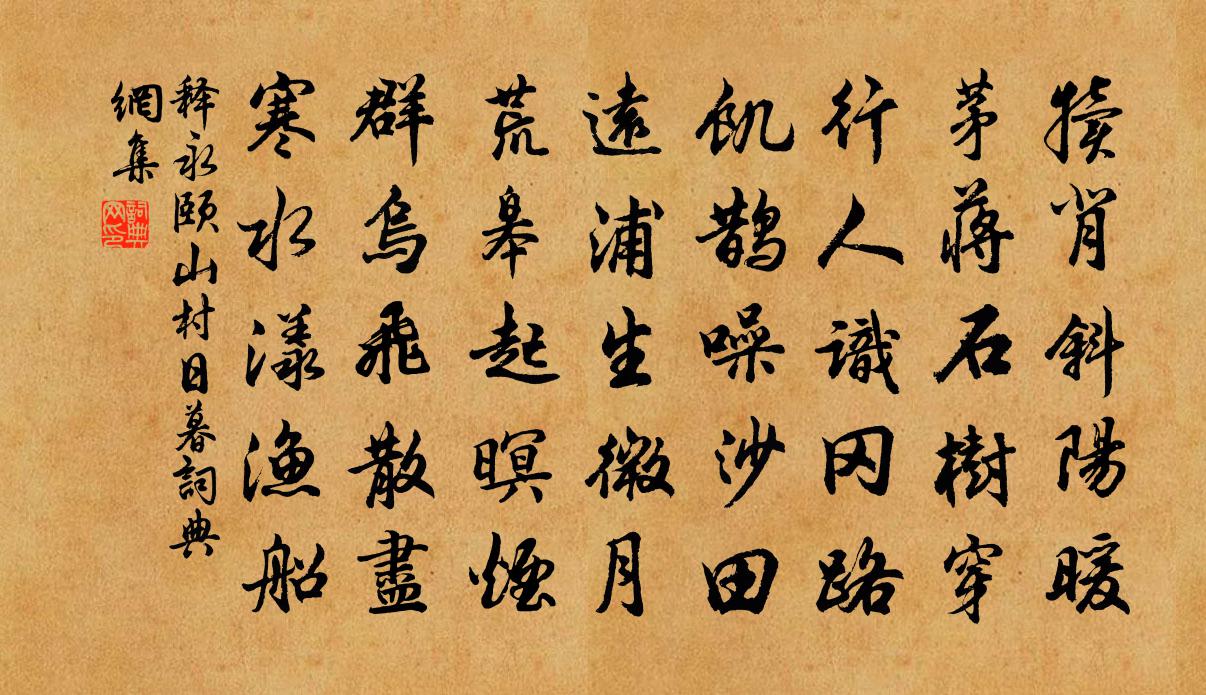 犢背斜陽暖
茅蔣石樹穿
行人識冈路
飢鵲噪沙田
遠浦生微月
荒皋起暝煙
群烏飛散盡
寒水漾漁船
释永頤山村日暮詞典
網集
詞典
网印